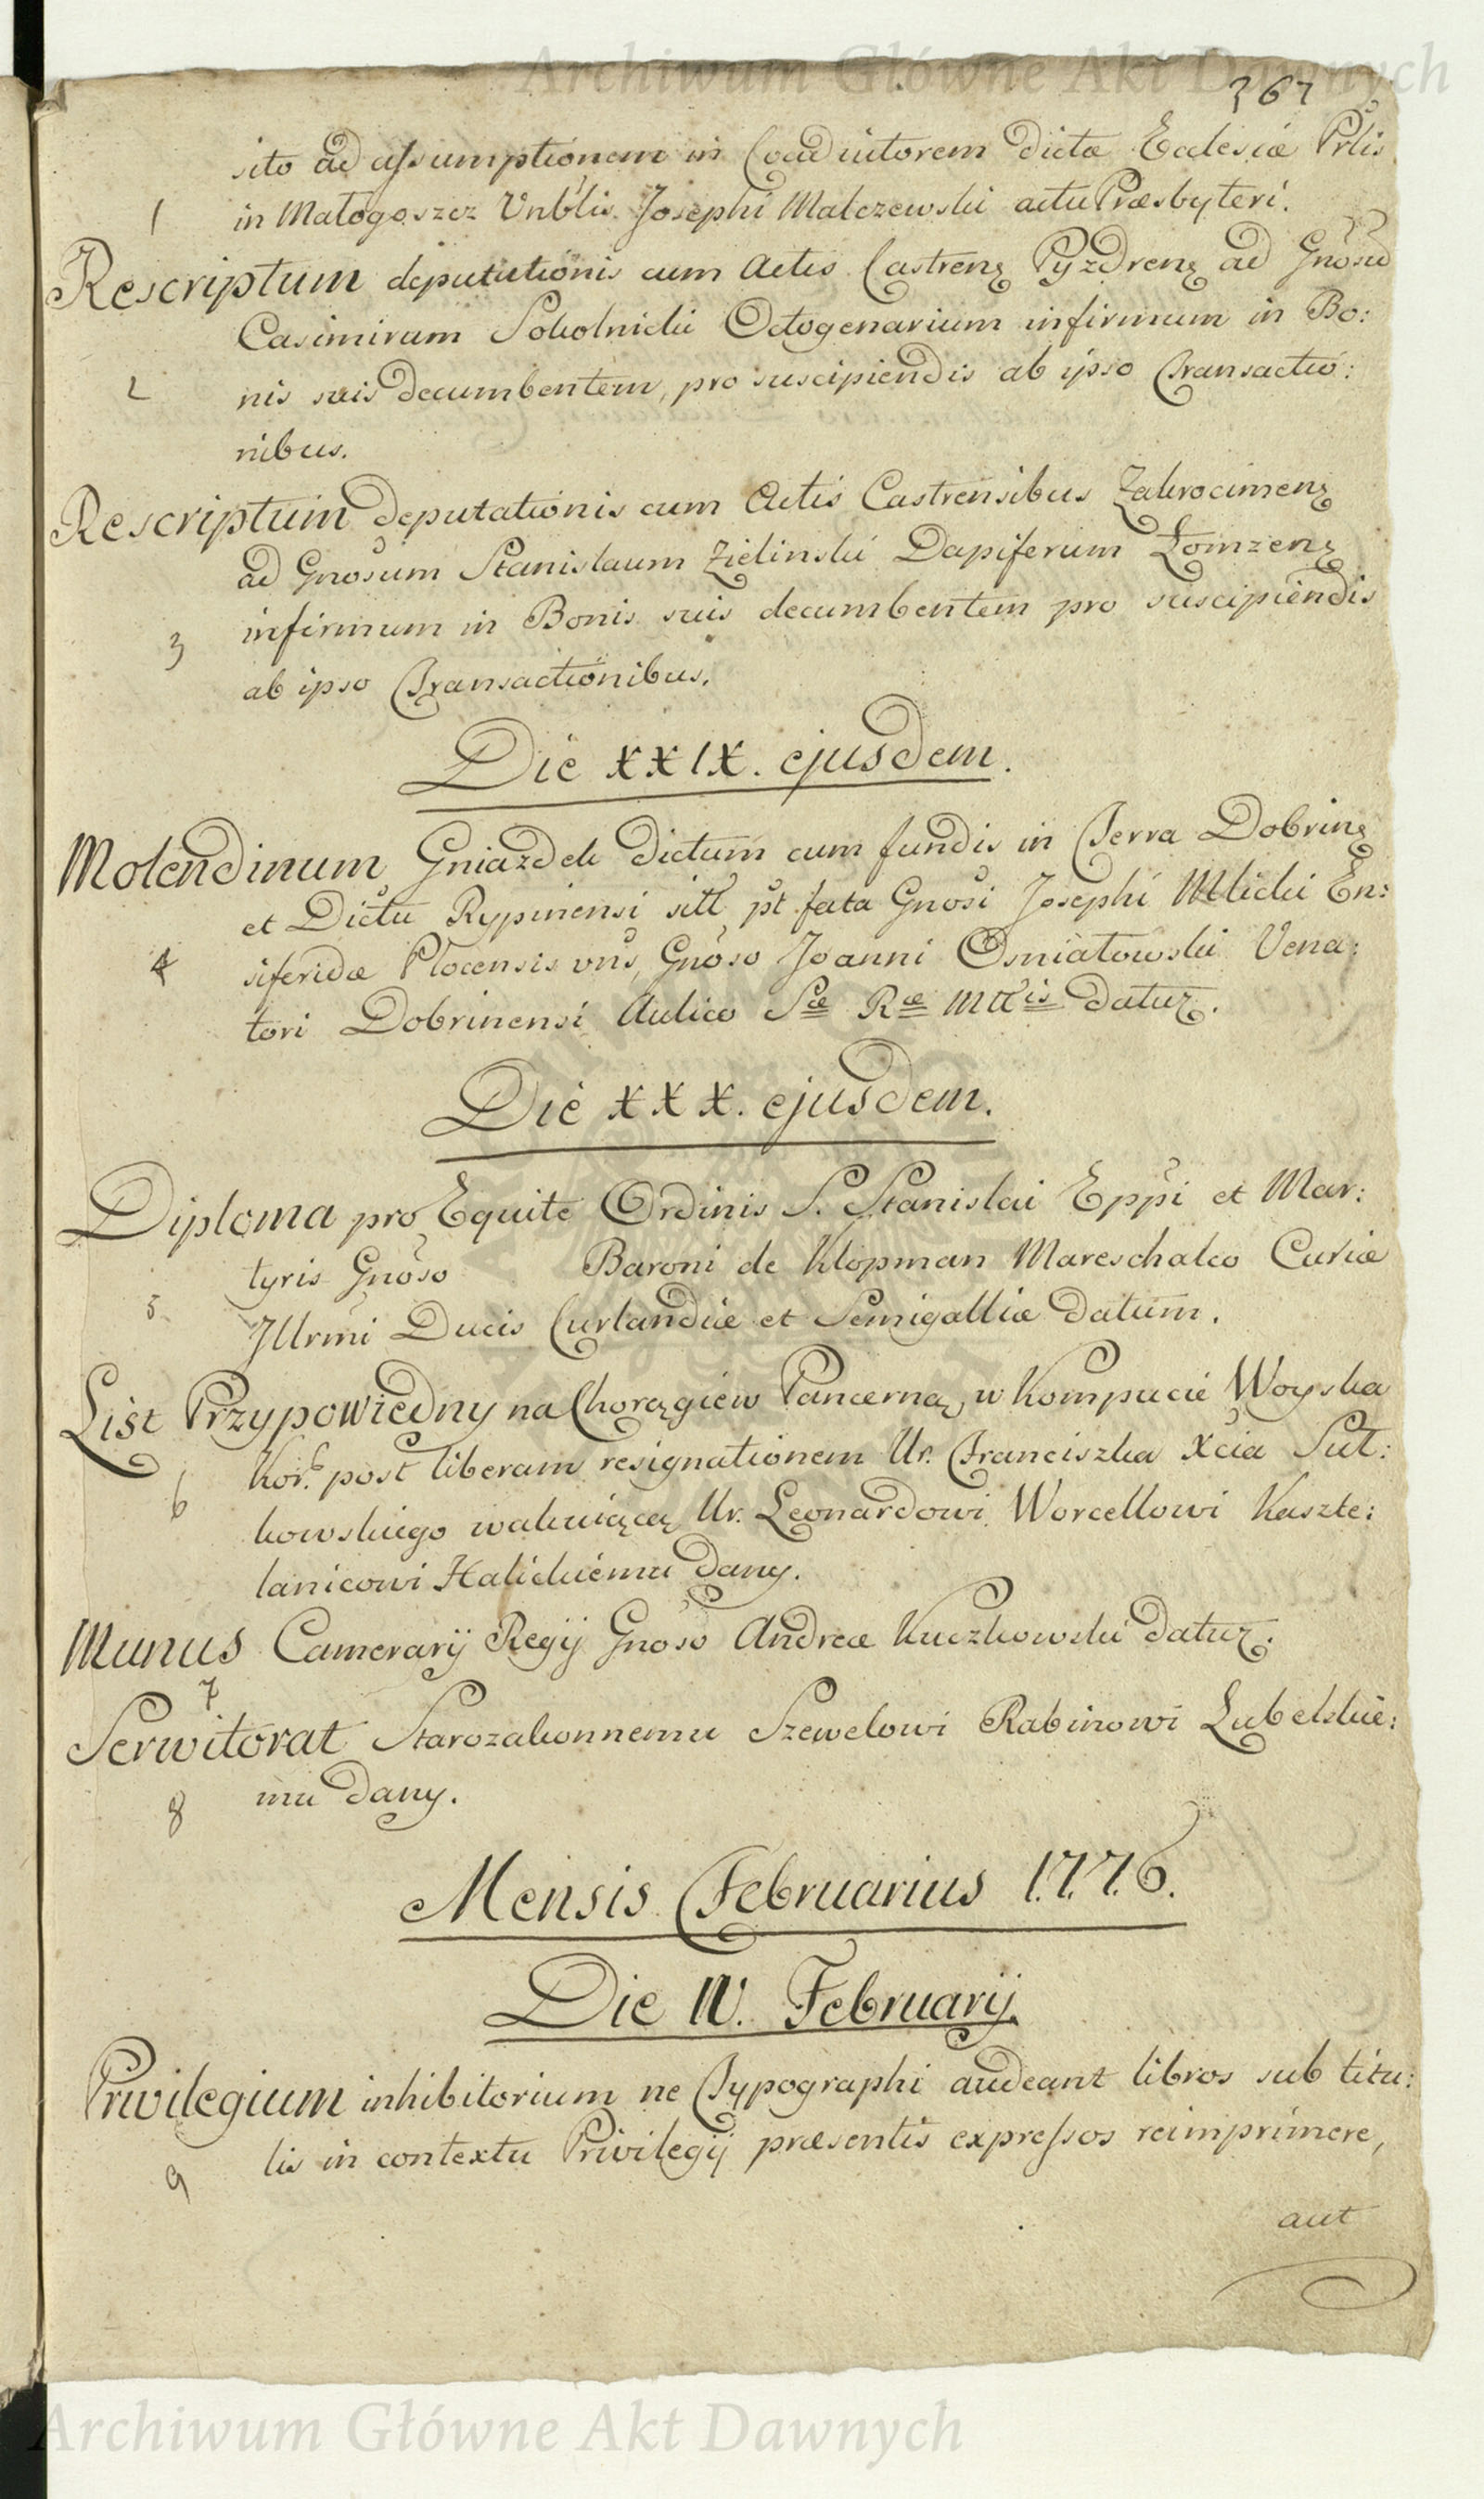 Archiwum Główne Akt Dawnych
367
sito ad assumptionem in Coadiutorem dictæ Ecclesiæ Prlis
1 in Małogoszcz Vnblis Josephi Malczewski actu Præsbyteri.
Rescriptum deputationis cum Actis Castren Pyzdren ad Gnosũ
Casimirum Sokolnicki Octogenarium infirmum in Bo:
2 nis suis decumbentem, pro suscipiendis ab ipso Transactio:
nibus.
Rescriptum deputationis cum Actis Castrensibus Zakrocimen
ad Gnosum Stanislaum Zielinski Dapiferum Łomzen
3 infirmum in Bonis suis decumbentem pro suscipiendis
ab ipso Transactionibus.
Die XXIX. ejusdem.
Molendinum Gniazdek dictum cum fundis in Terra Dobrin
et Dictu Rypinensi sitt pt fata Gnosi Josephi Mlicki En:
4 siferidæ Plocensis vns, Gnoso Joanni Osniatowski Vena:
tori Dobrinensi Aulico Sæ Ræ Mttis datur.
Die XXX. ejusdem.
Diploma pro Equite Ordinis S. Stanislai Eppi et Mar:
tyris Gnoso Baroni de Klopman Mareschalco Curiæ
5 Illrmi Ducis Curlandiæ et Semigalliæ datum.
List Przypowiedny na Chorągiew Pancerną w Kompucie Woyska
Kor. post liberam resignationem Ur. Franciszka Xcia Suł:
6 kowskiego wakuiącą Ur. Leonardowi Worcellowi Kaszte:
lanicowi Halickiemu dany.
Munus Camerarij Regij Gnoso Andreæ Kuczkowski datur.
7
Serwitorat Starozakonnemu Szewelowi Rabinowi Lubelskie:
8 mu dany.
Mensis Februarius 1.7.7.6.
Die IV. Februarij.
Privilegium inhibitorium ne Typographi audeant libros sub titu:
9 lis in contextu Privilegij præsentis expressos reimprimere,
aut
Archiwum Główne Akt Dawnych